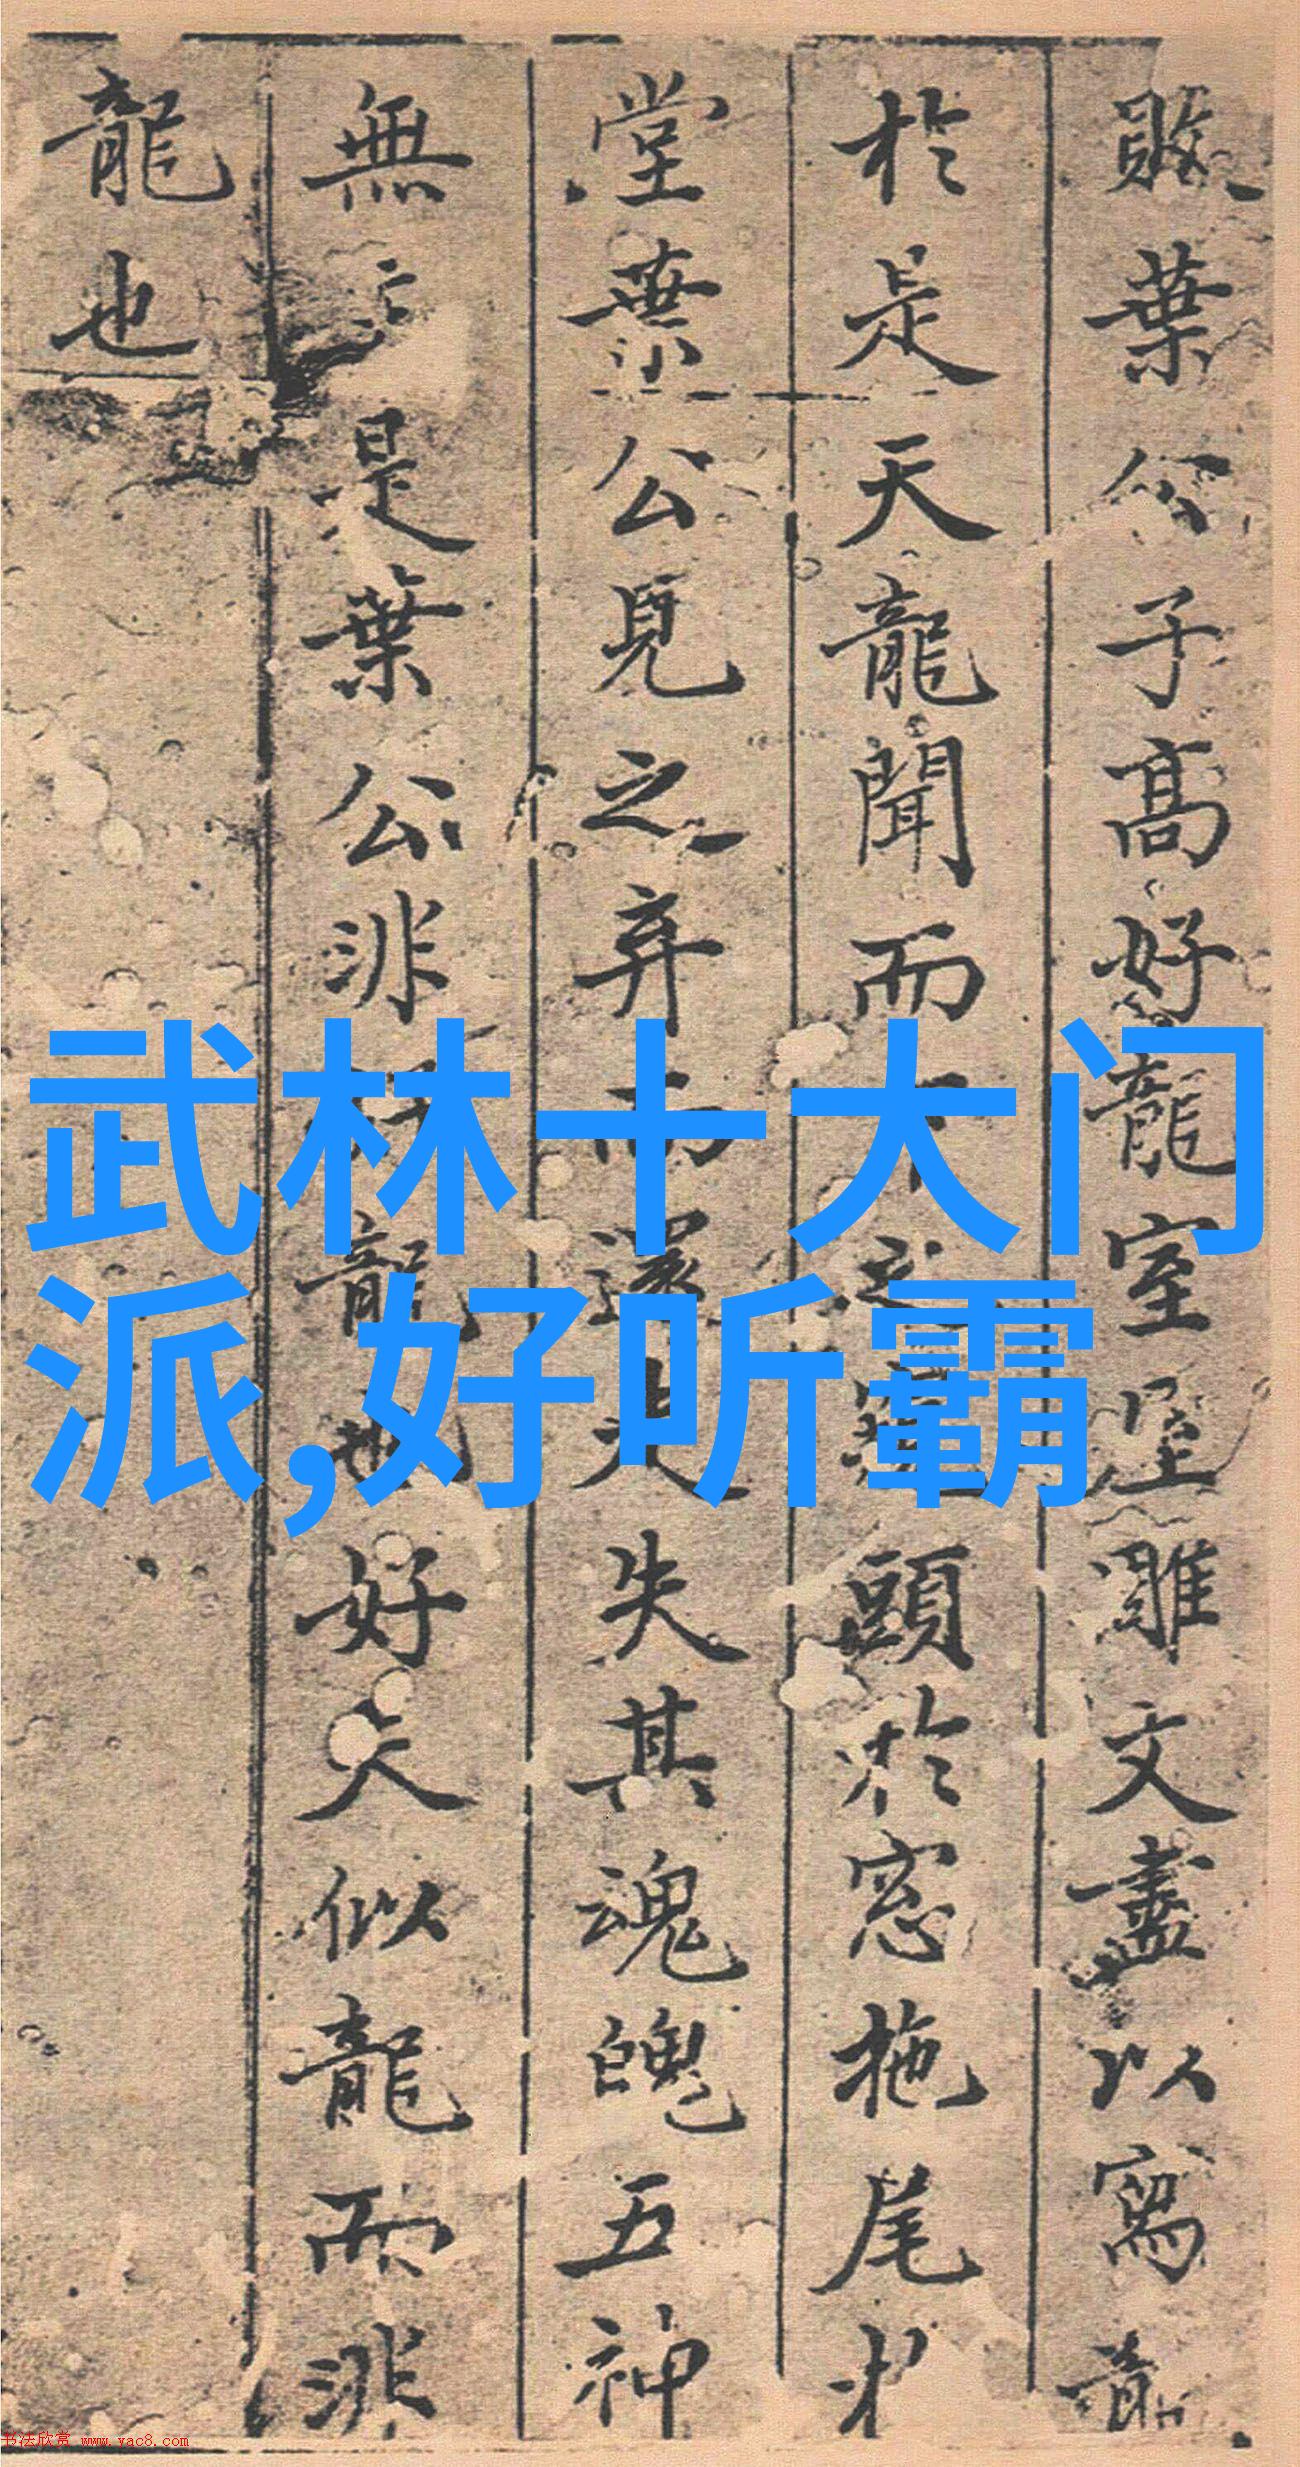 敗葉公子高好龍室屋雕文盡以寫龍
於是天龍聞而頭於窓拖尾
堂葉公見之弃而還走失其魂魄五神
無主是葉公非好龍也好夫似龍而非
龍也
武林十大门
派,好听霸
书法欣赏 www.yac8.com